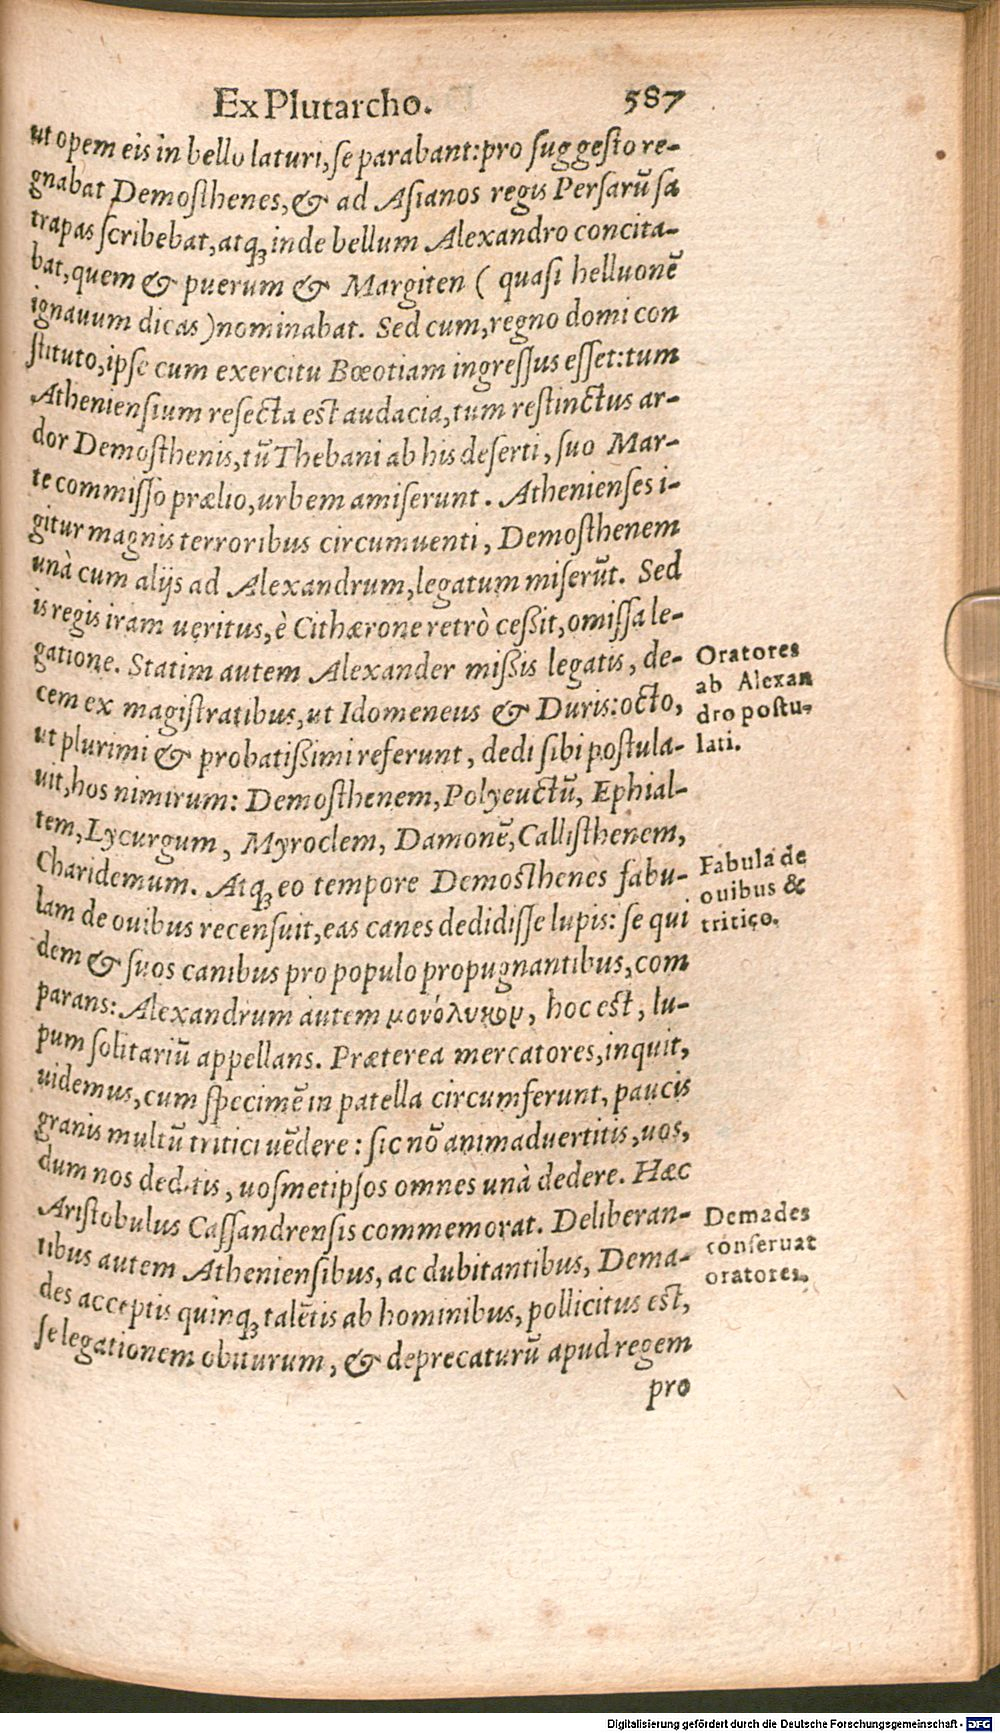 Ex Plutarcho. 587
ut opem eis in bello laturi, se parabant: pro suggesto re-
gnabat Demosthenes, & ad Asianos regis Persarū sa
trapas scribebat, atq; inde bellum Alexandro concita-
bat, quem & puerum & Margiten ( quasi helluonē
ignauum dicas ) nominabat. Sed cum, regno domi con
stituto, ipse cum exercitu Bœotiam ingressus esset: tum
Atheniensium resecta est audacia, tum restinctus ar-
dor Demosthenis, tū Thebani ab his deserti, suo Mar-
te commisso prælio, urbem amiserunt. Athenienses i-
gitur magnis terroribus circumuenti, Demosthenem
unà cum alijs ad Alexandrum, legatum miserūt. Sed
is regis iram ueritus, è Cithærone retrò cessit, omissa le-
gatione. Statim autem Alexander missis legatis, de-
cem ex magistratibus, ut Idomeneus & Duris: octo,
ut plurimi & probatissimi referunt, dedi sibi postula-
uit, hos nimirum: Demosthenem, Polyeuctū, Ephial-
tem, Lycurgum, Myroclem, Damonē, Callisthenem,
Charidemum. Atq; eo tempore Demosthenes fabu-
lam de ouibus recensuit, eas canes dedidisse lupis: se qui
dem & suos canibus pro populo propugnantibus, com
parans: Alexandrum autem μονόλυκον, hoc est, lu-
pum solitariū appellans. Præterea mercatores, inquit,
uidemus, cum specimē in patella circumferunt, paucis
granis multū tritici uēdere: sic nō animaduertitis, uos,
dum nos deditis, uosmetipsos omnes unà dedere. Hæc
Aristobulus Cassandrensis commemorat. Deliberan-
tibus autem Atheniensibus, ac dubitantibus, Dema-
des acceptis quinq; talētis ab hominibus, pollicitus est,
se legationem obiturum, & deprecaturū apud regem
pro
Oratores
ab Alexan
dro postu-
lati.
Fabula de
ouibus &
tritico.
Demades
conseruat
oratores.
Digitalisierung gefördert durch die Deutsche Forschungsgemeinschaft - DFG